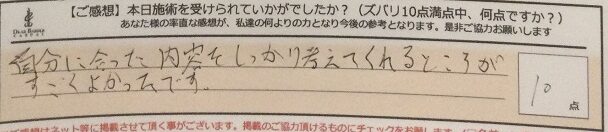 【ご感想】本日施術を受けられていかがでしたか？（ズバリ10点満点中、何点ですか？）
あなた様の率直な感想が、私達の何よりの力となり今後の参考となります。是非ご協力お願いします
自分に合った内容をしっかり考えてくれるところが
すごくよかったです。
10
点
ご感想はネット等に掲載させて頂く事がございます。掲載のご協力頂けるものにチェックをお願いします。